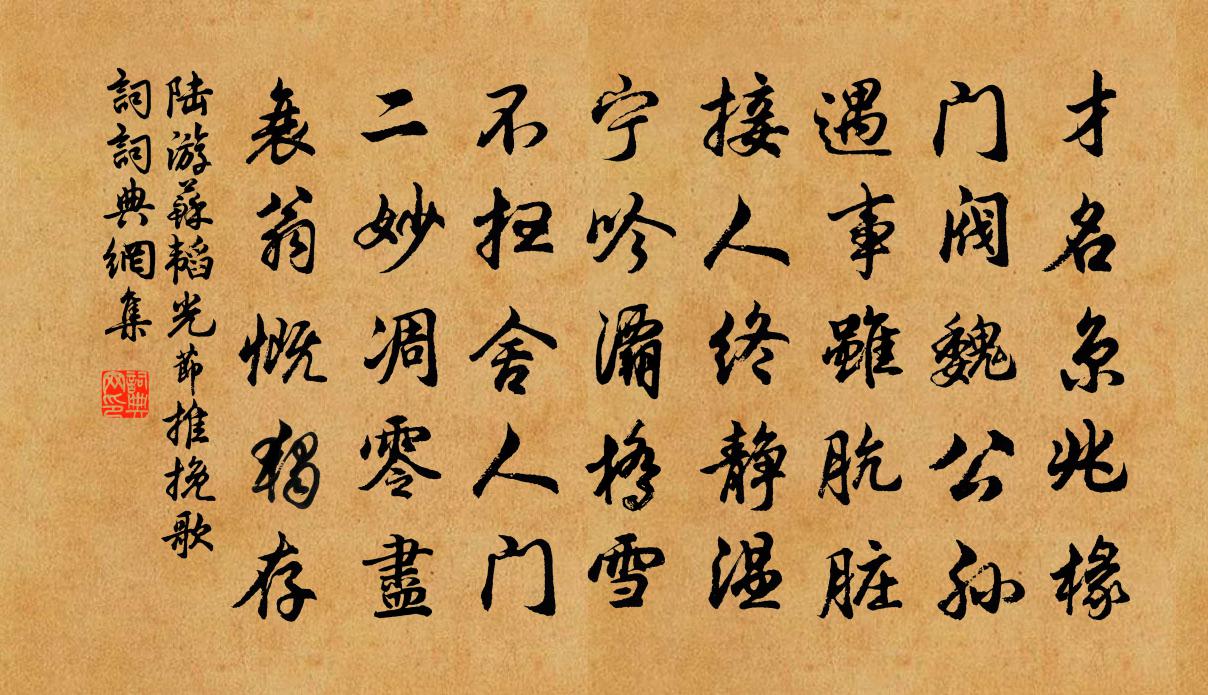 才名京兆椽
门阀魏公孙
遇事虽肮脏
接人终静温
宁吟灞桥雪
不扫舍人门
二妙凋零盡
衰翁慨独存
陆游蘇韬光節推挽歌
詞詞典網集
詞典网印